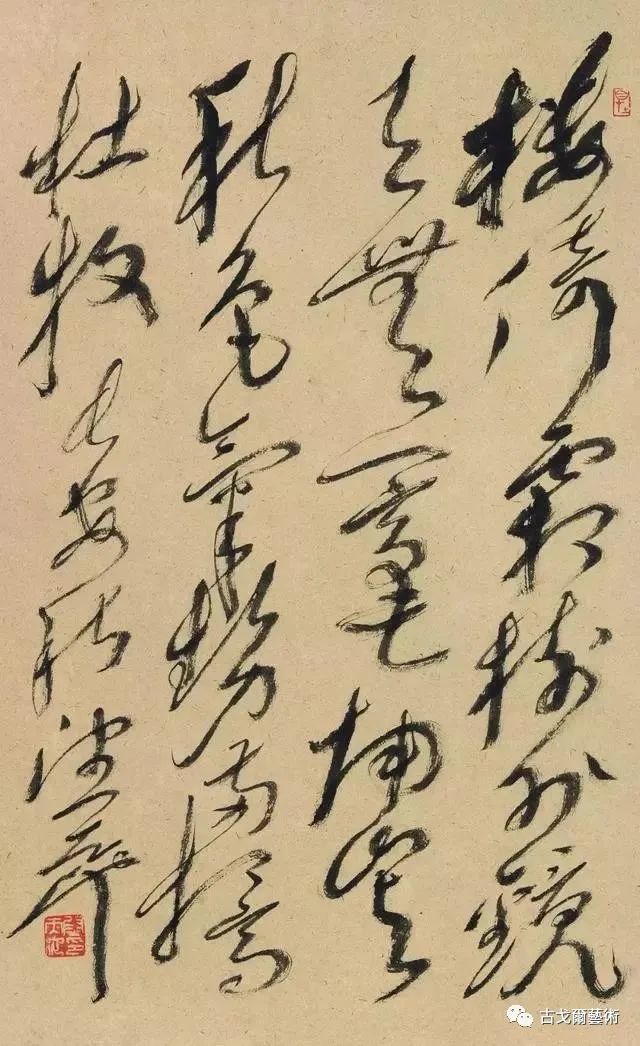 樓倚霜樹外鏡
天無一毫南山與
秋色氣勢兩相高
杜牧長安秋
古戈爾藝術